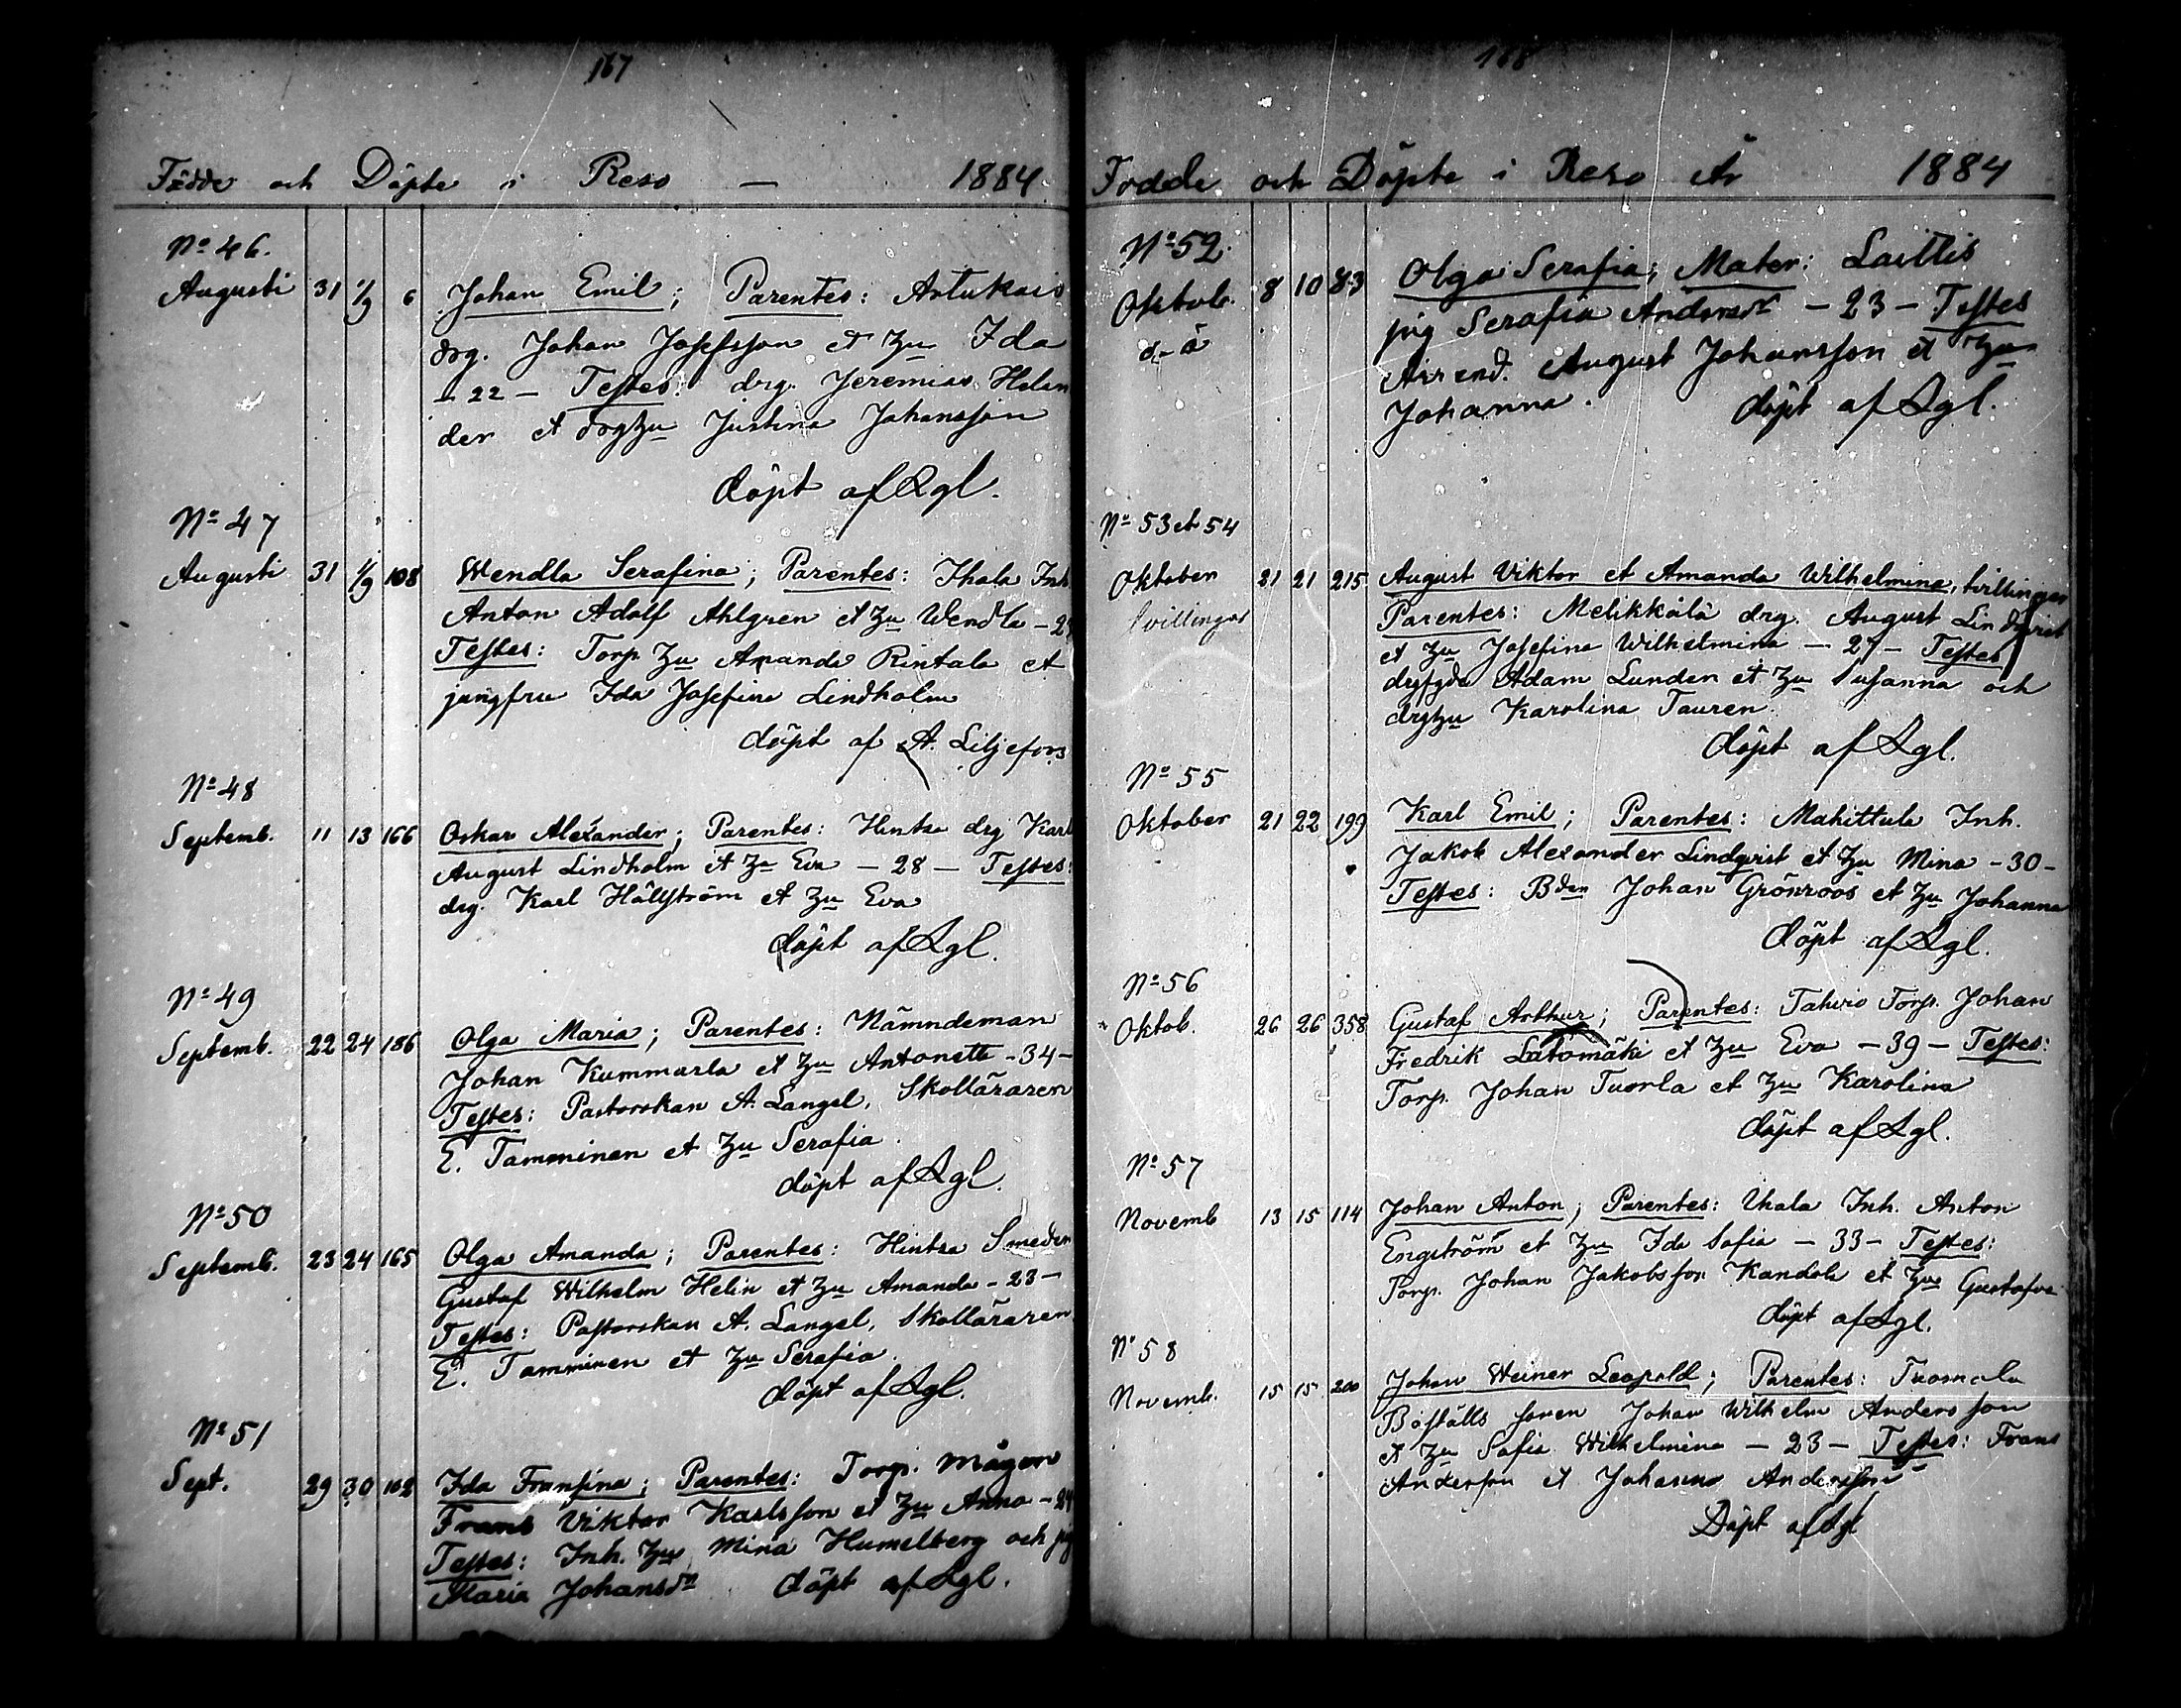 167
Födde och Döpte i Reso — 1884
No 46.
Augusti 31 1/9 6 Johan Emil; Parentes: Artukais
drg. Johan Josefsson et Hu Ida
- 22 - Testes: drg. Jeremias Helen
der et drghu Justina Johansson
döpt af Lgl.
No 47
Augusti 31 1/9 108 Wendla Serafina; Parentes: Ihala Inh.
Anton Adolf Ahlgren et Hu Wendla - 2
Testes: Torp. Hu Amanda Rintala et
jungfru Ida Josefina Lindholm
döpt af A. Liljefors
No 48
Septemb. 11 13 166 Oskar Alexander; Parentes: Hintsa drg Karl
August Lindholm et Hu Eva - 28 - Testes:
drg. Karl Hällström et Hu Eva
döpt af Lgl.
No 49
Septemb. 22 24 186 Olga Maria; Parentes: Nämndeman
Johan Kummarla et Hu Antonette - 34 -
Testes: Pastorskan A. Langel, Skolläraren
E. Tamminen et Hu Serafia.
döpt af Lgl.
No 50
Septemb. 23 24 165 Olga Amanda; Parentes: Hintsa Smeden
Gustaf Wilhelm Helin et Hu Amanda - 23 -
Testes: Pastorskan A. Langel, Skolläraren
E. Tamminen et Hu Serafia.
döpt af Lgl.
No 51
Sept. 29 30 102 Ida Fransina; Parentes: Torp. mågen
Frans Viktor Karlsson et Hu Anna - 24
Testes: Inh. Hu Mina Humelberg och pig
Maria Johansdr döpt af Lgl.
168
Födde och Döpte i Reso År 1884
No 52.
Oktob. 8 10 83 Olga Serafia; Mater: Laittis
d. ä pig Serafia Andersdr - 23 - Testes
Arrend. August Johansson et Hu
Johanna. döpt af Lgl.
No 53 et 54
Oktober 21 21 215 August Viktor et Amanda Wilhelmina, tvillingar
tvillingar Parentes: Melikkälä drg. August Lindqvist
et Hu Josefina Wilhelmina - 27 - Testes
Adam Lunden et Hu Susanna och
drghu Karolina Tauren.
döpt af Lgl.
No 55
Oktober 21 22 199 Karl Emil; Parentes: Mahittula Inh.
Jakob Alexander Lindqvist et Hu Mina - 30 -
Testes: Bden Johan Grönroos et Hu Johanna
döpt af Lgl.
No 56
Oktob. 26 26 358 Gustaf Arthur; Parentes: Tahvio Torp. Johan
Fredrik Latomäki et Hu Eva - 39 - Testes:
Torp. Johan Tuorla et Hu Karolina
döpt af Lgl.
No 57
Novemb 13 15 114 Johan Anton; Parentes: Ihala Inh. Anton
Engström et Hu Ida Sofia - 33 - Testes:
Torp. Johan Jakobsson Kandola et Hu Gustafva
döpt af Lgl.
No 58
Novemb. 15 15 200 Johan Weiner Leopold; Parentes: Tuomola
Boställs sonen Johan Wilhelm Andersson
et Hu Sofia Wilhelmina - 23 - Testes: Frans
Andersson et Johanna Andersson
Döpt af Lgl